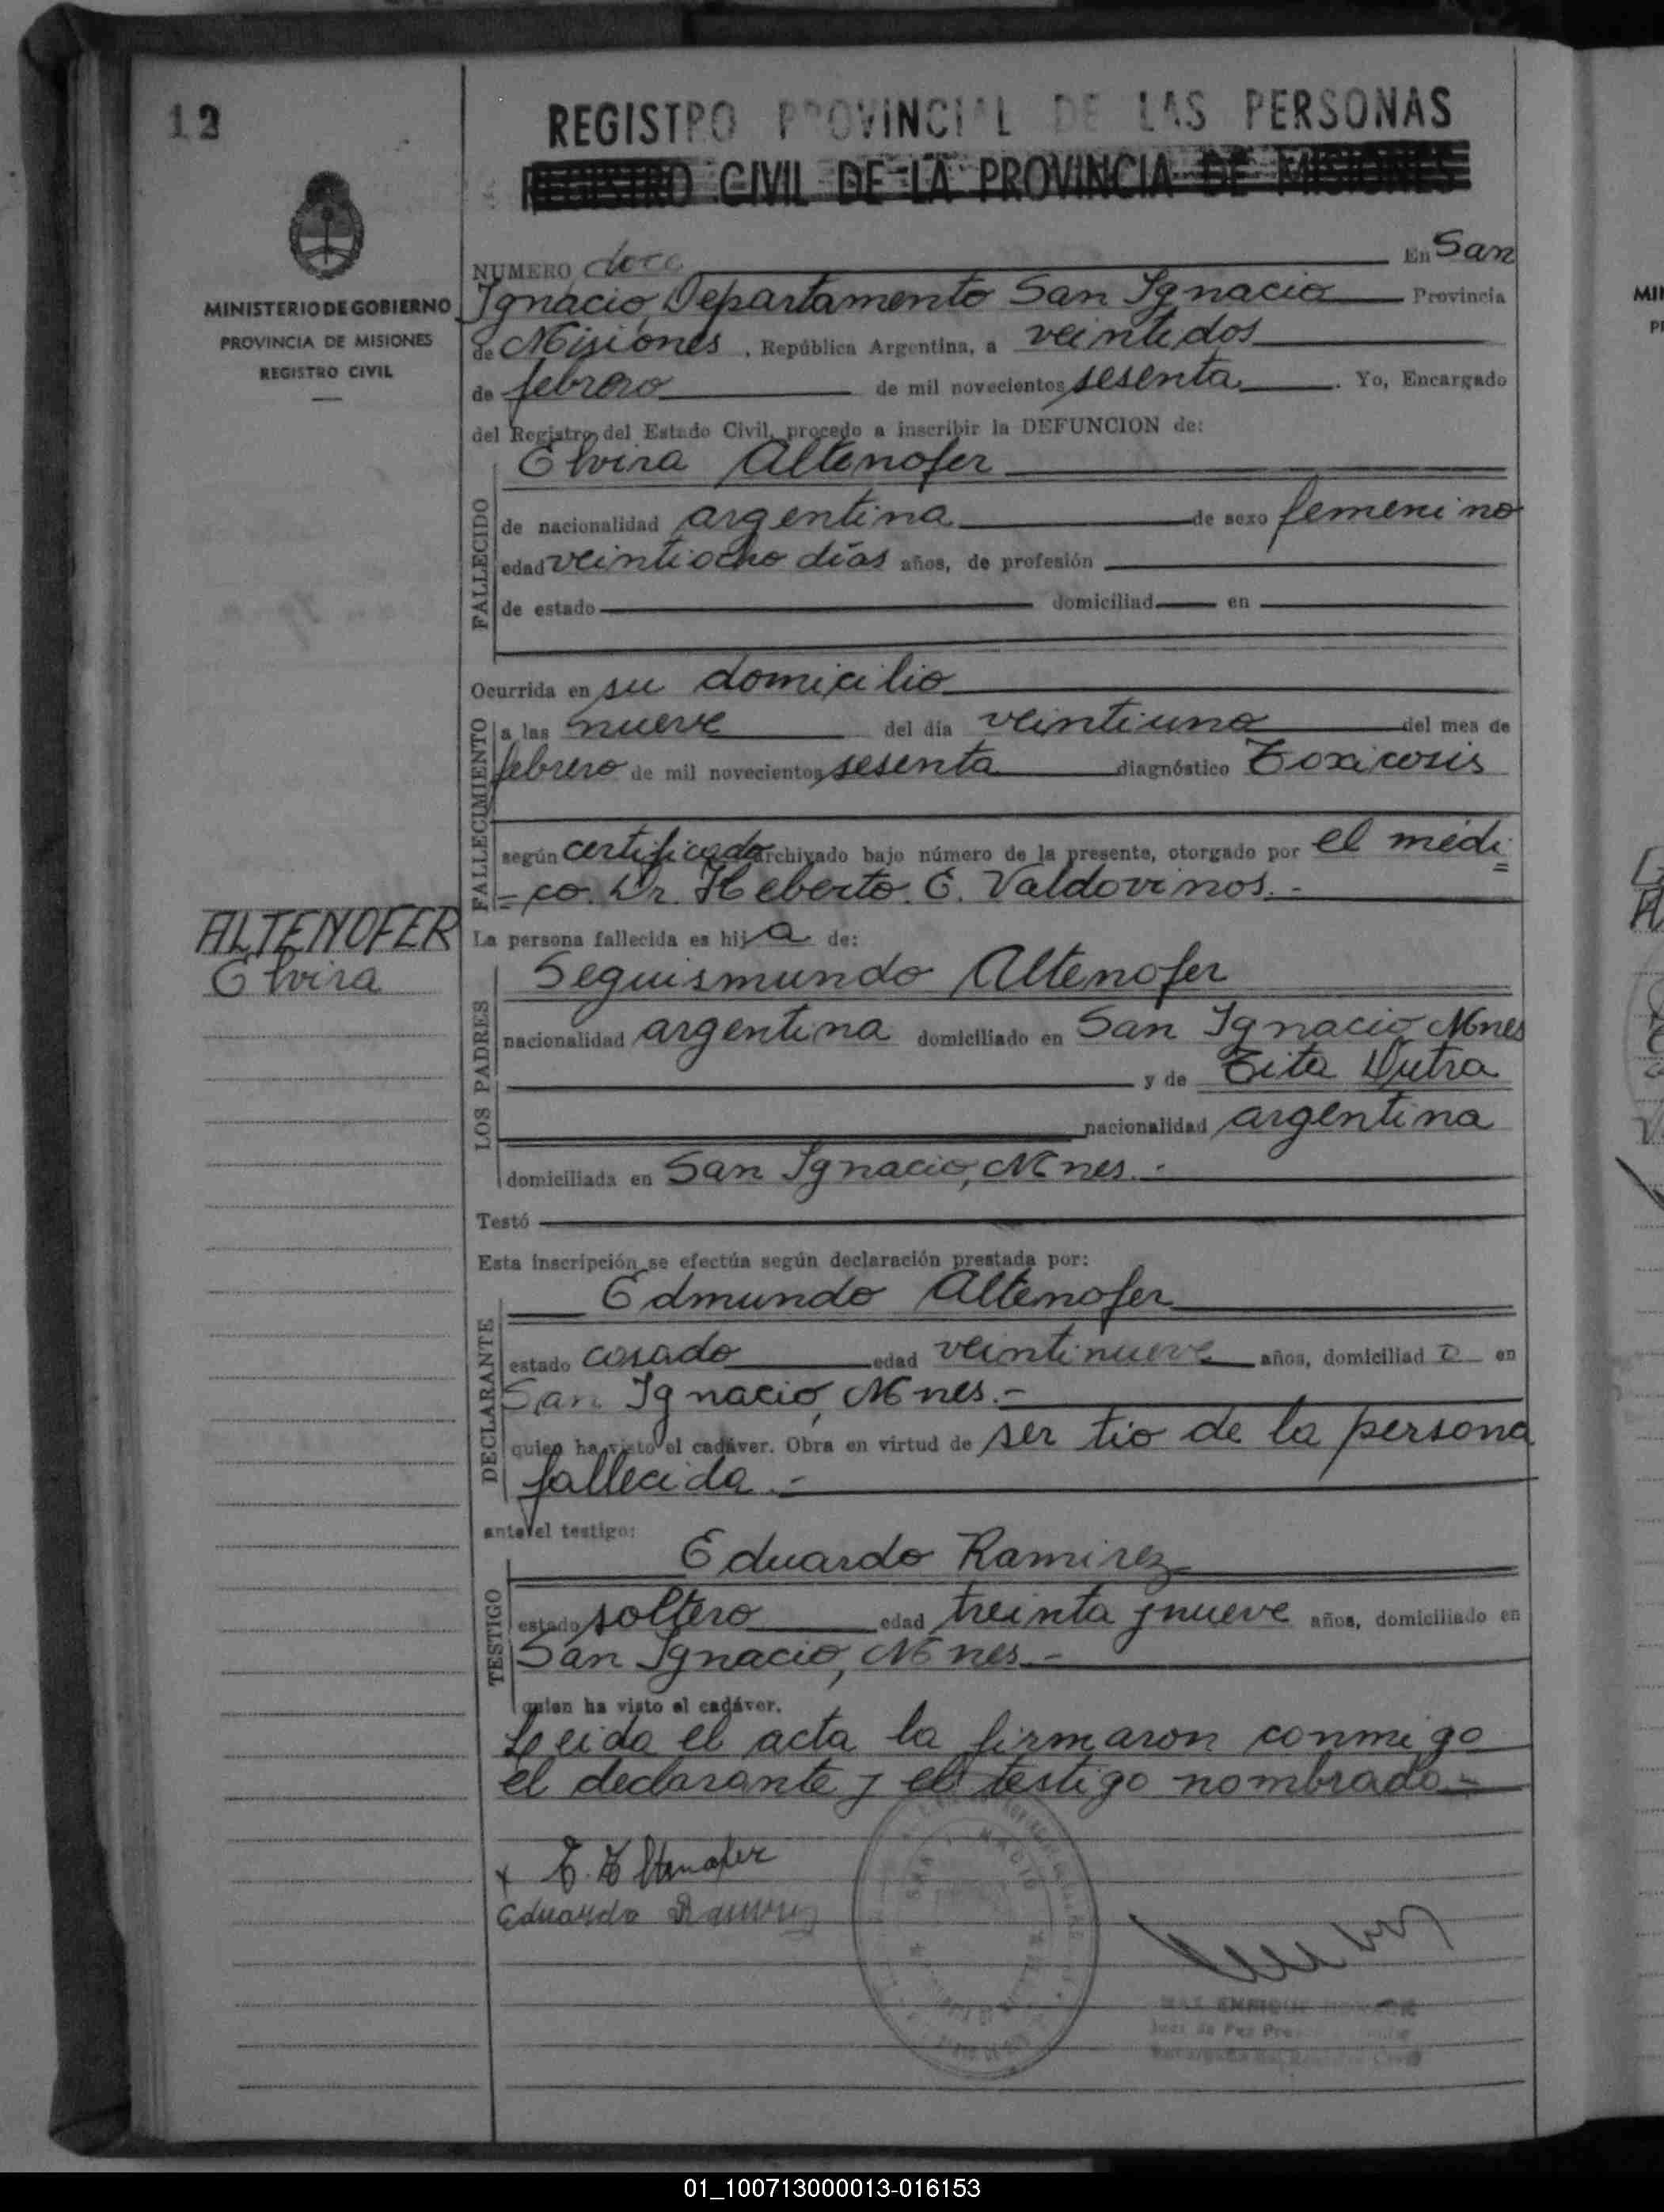 12
REGISTRO PROVINCIAL DE LAS PERSONAS
REGISTRO CIVIL DE LA PROVINCIA DE MISIONES
MINISTERIO DE GOBIERNO
PROVINCIA DE MISIONES
REGISTRO CIVIL
NUMERO doce En San
Ignacio, Departamento San Ignacio Provincia
de Misiones, República Argentina, a veintidos
de febrero de mil novecientos sesenta. Yo, Encargado
del Registro del Estado Civil, procedo a inscribir la DEFUNCION de:
FALLECIDO
Elvira Altenofer
de nacionalidad argentina de sexo femenino
edad veintiocho días años, de profesión
de estado domiciliad en
Ocurrida en su domicilio
FALLECIMIENTO
a las nueve del día veintiuno del mes de
febrero de mil novecientos sesenta diagnóstico Toxicosis
según certificado archivado bajo número de la presente, otorgado por el médi=
=co. Dr. Heberto. E. Valdovinos.-
ALTENOFER
Elvira
La persona fallecida es hija de:
LOS PADRES
Seguismundo Altenofer
nacionalidad argentina domiciliado en San Ignacio, Mnes
y de Tita Dutra
nacionalidad argentina
domiciliada en San Ignacio, Mnes.-
Testó
Esta inscripción se efectúa según declaración prestada por:
DECLARANTE
Edmundo Altenofer
estado casado edad veintinueve años, domiciliado en
San Ignacio, Mnes.-
quien ha visto el cadáver. Obra en virtud de ser tio de la persona
fallecida.-
ante el testigo:
TESTIGO
Eduardo Ramirez
estado soltero edad treinta y nueve años, domiciliado en
San Ignacio, Mnes.-
quien ha visto el cadáver.
Leida el acta la firmaron conmigo
el declarante y el testigo nombrado.-
x E. Altenofer
Eduardo Ramirez
ENRIQUE
Juez de Paz
Encargado del Registro Civil
01_100713000013-016153